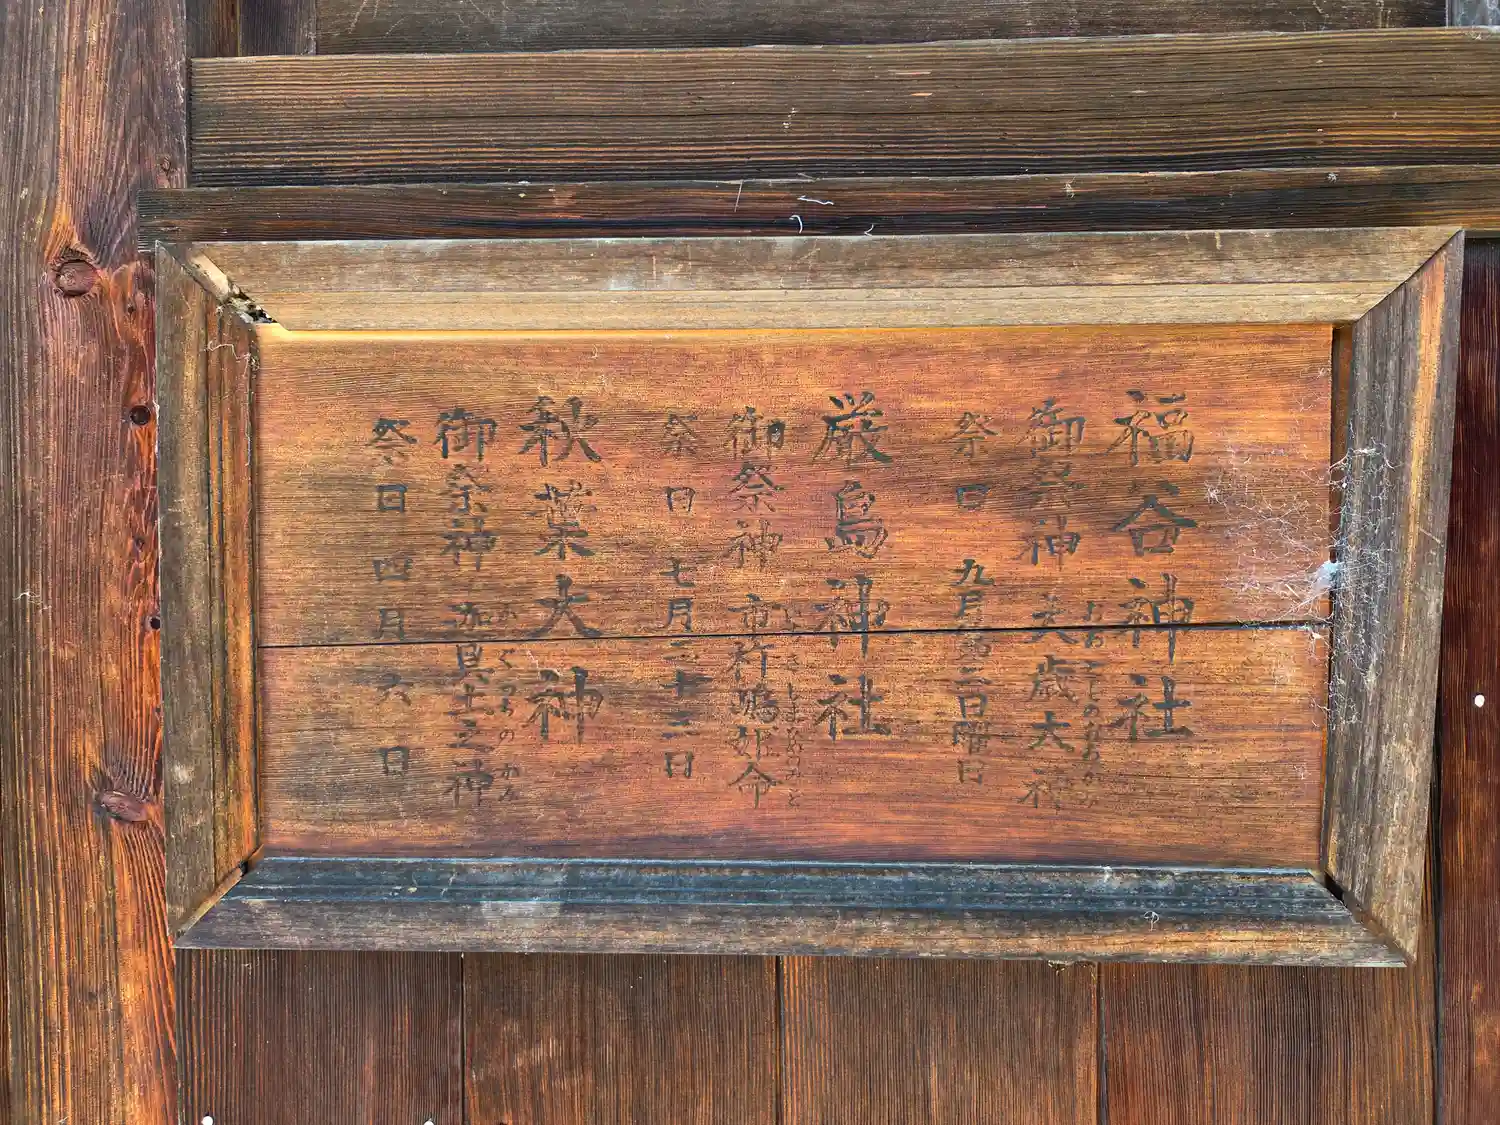 福谷神社
御祭神 歳大神
祭日 九月第三日曜日
厳島神社
御祭神 市杵嶋姫命
祭日 七月二十三日
秋葉大神
御祭神 迦具土之神
かぐつちのかみ
祭日 四月六日